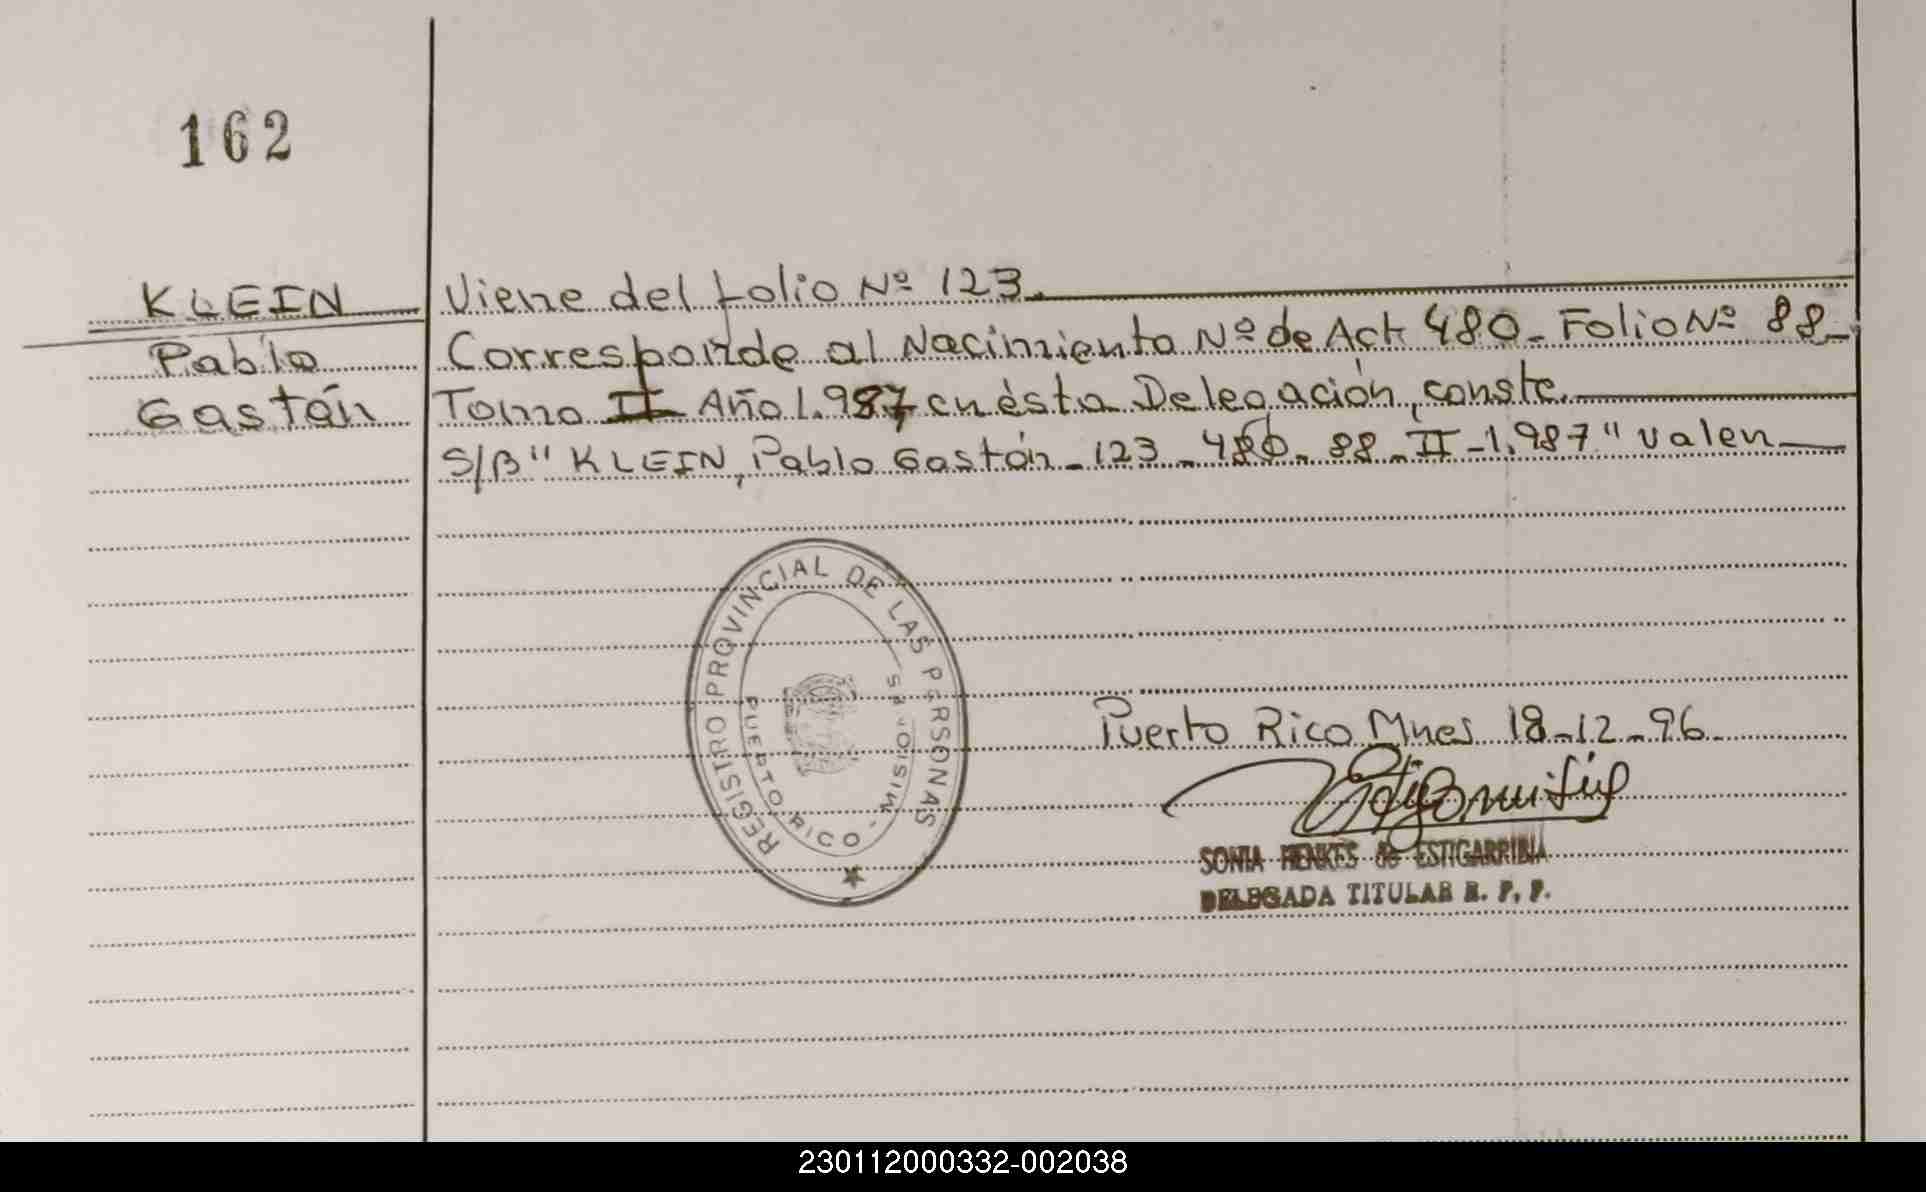 162
KLEIN
Pablo
Gastán
Viene del folio Nº 123.
Corresponde al Nacimiento Nº de Act 480_ Folio Nº 88_
Tomo II Año 1.987 en ésta Delegación, conste.
S/B" KLEIN, Pablo Gastón_123_480_88_II_1.987" valen
REGISTRO PROVINCIAL DE LAS PERSONAS
PUERTO RICO - MISIONES
Puerto Rico Mnes 18_12_96_
SONIA HENKES de ESTIGARRIBIA
DELEGADA TITULAR R. P. P.
230112000332-002038